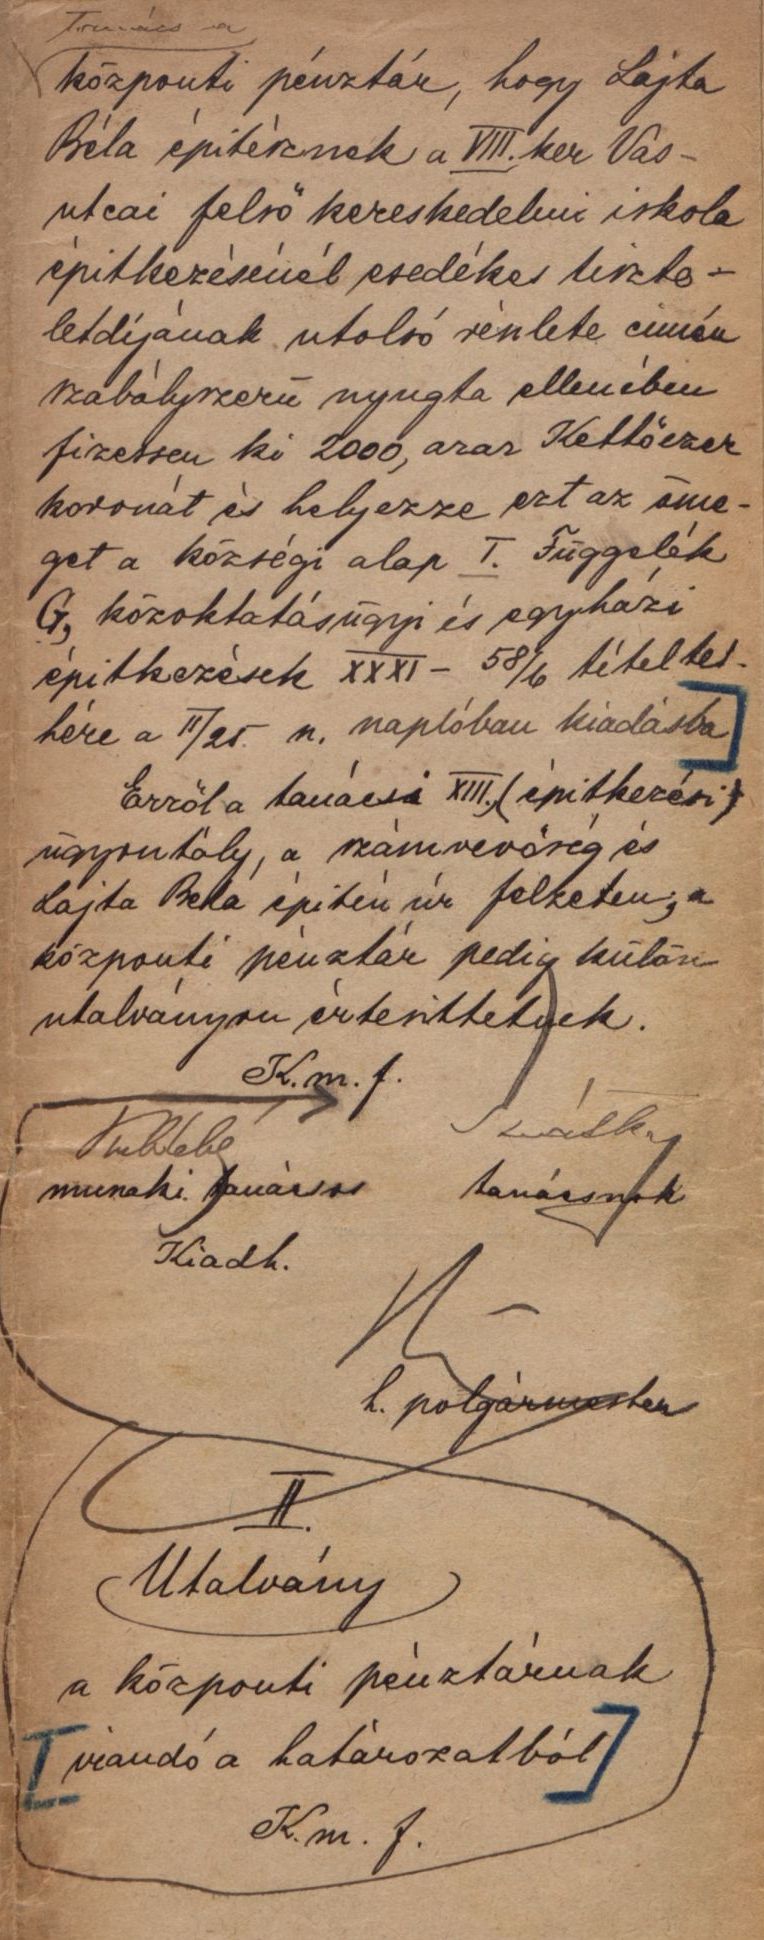 központi pénztár, hogy Lajta
Béla épitésznek a VIII. ker Vas-
utcai felső kereskedelmi iskola
épitkezésénél esedékes tiszte-
letdíjának utolsó részlete cimén
szabályszerű nyugta ellenében
fizessen ki 2000, azaz Kettőezer
koronát és helyezze ezt az össze-
get a községi alap I. Függelék
G, közoktatásügyi és egyházi
épitkezések XXXI - 58/b tétel ter-
hére a II/25. sz. naplóban kiadásba
Erről a tanácsi XIII. (épitkezési)
ügyosztály, a számvevőség és
Lajta Béla épitész úr felzeten, a
központi pénztár pedig külön
utalványon értesittetnek.
K. m. f.
tanácsnok
Kiadh.
h. polgármester
II.
Utalvány
a központi pénztárnak
viandó a határozatból
K. m. f.